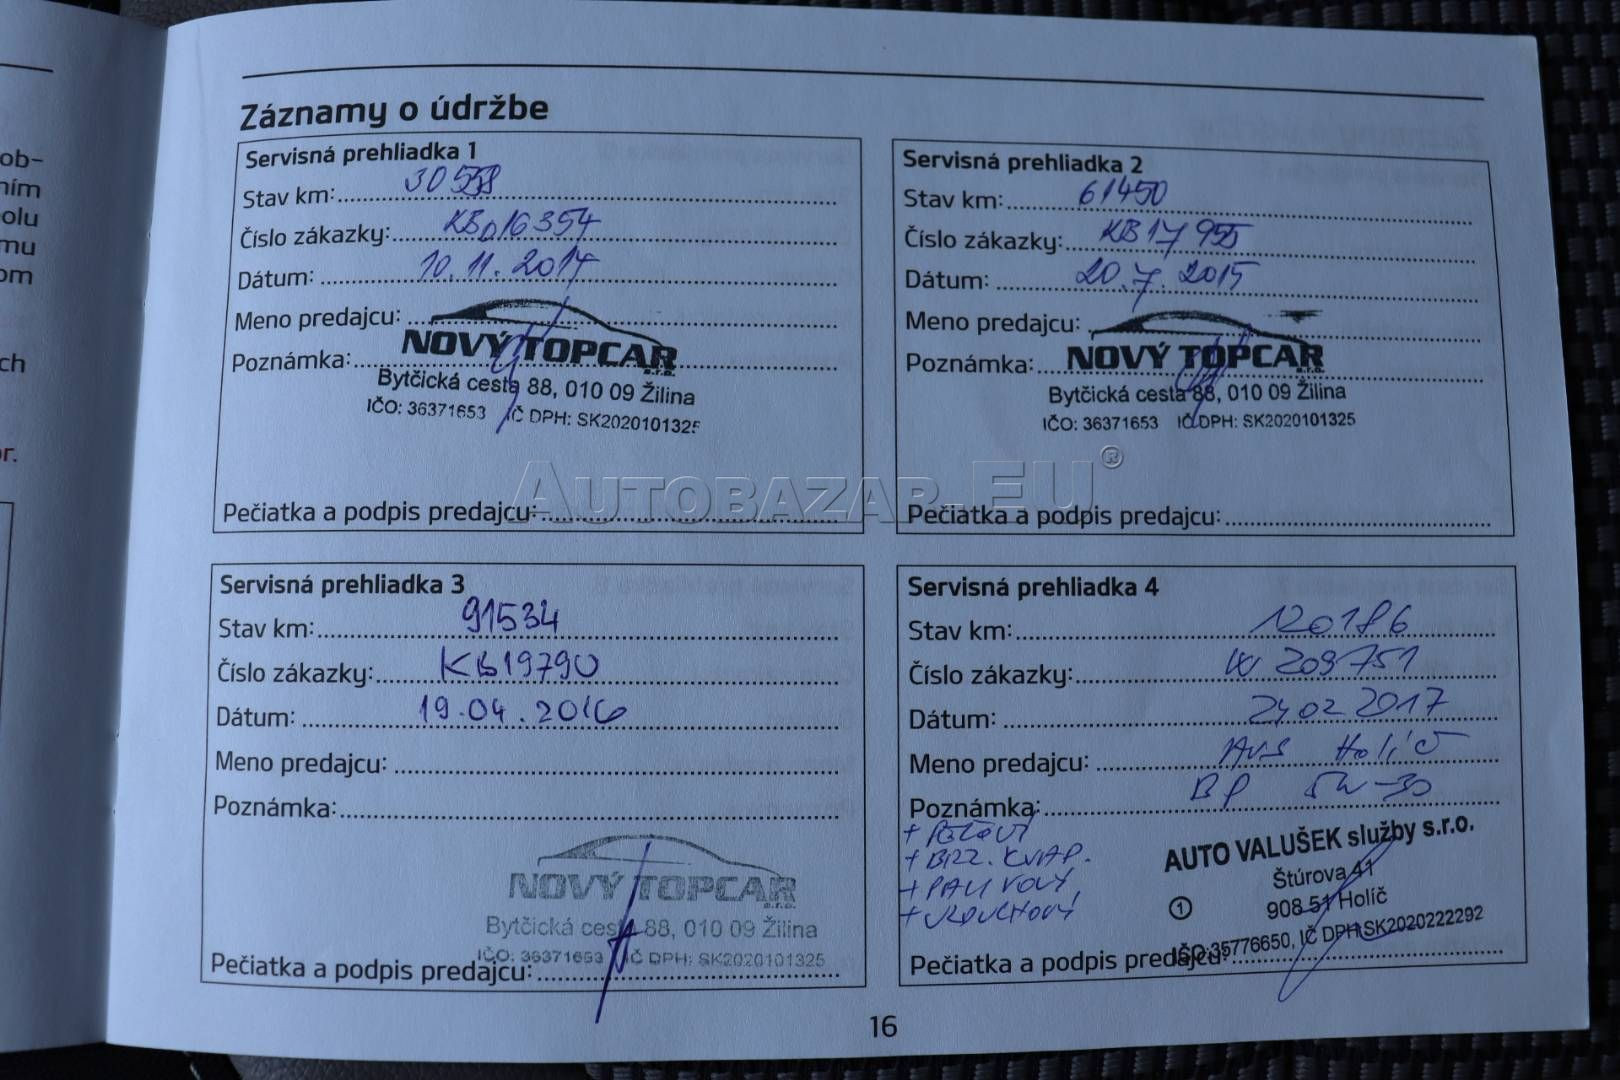 Záznamy o údržbe
ob-
ním
olu
mu
om
ch
or.
Servisná prehliadka 1
Stav km: 30558
Číslo zákazky: KB016354
Dátum: 10.11.2014
Meno predajcu:
Poznámka:
NOVÝ TOPCAR s.r.o.
Bytčická cesta 88, 010 09 Žilina
IČO: 36371653 IČ DPH: SK2020101325
Pečiatka a podpis predajcu:
Servisná prehliadka 2
Stav km: 61450
Číslo zákazky: KB17955
Dátum: 20.7.2015
Meno predajcu:
Poznámka:
NOVÝ TOPCAR s.r.o.
Bytčická cesta 88, 010 09 Žilina
IČO: 36371653 IČ DPH: SK2020101325
Pečiatka a podpis predajcu:
AUTOBAZAR.EU®
Servisná prehliadka 3
Stav km: 91534
Číslo zákazky: KB19790
Dátum: 19.04.2016
Meno predajcu:
Poznámka:
NOVÝ TOPCAR s.r.o.
Bytčická cesta 88, 010 09 Žilina
IČO: 36371653 IČ DPH: SK2020101325
Pečiatka a podpis predajcu:
Servisná prehliadka 4
Stav km: 120186
Číslo zákazky: W 209751
Dátum: 24 02 2017
Meno predajcu: Holíč
Poznámka: BP 5W-30
+ BRZ. KVAP.
+ PALIVOVÝ
AUTO VALUŠEK služby s.r.o.
Štúrova 41
1 908 51 Holíč
IČO:35776650, IČ DPH:SK2020222292
Pečiatka a podpis predajcu:
16